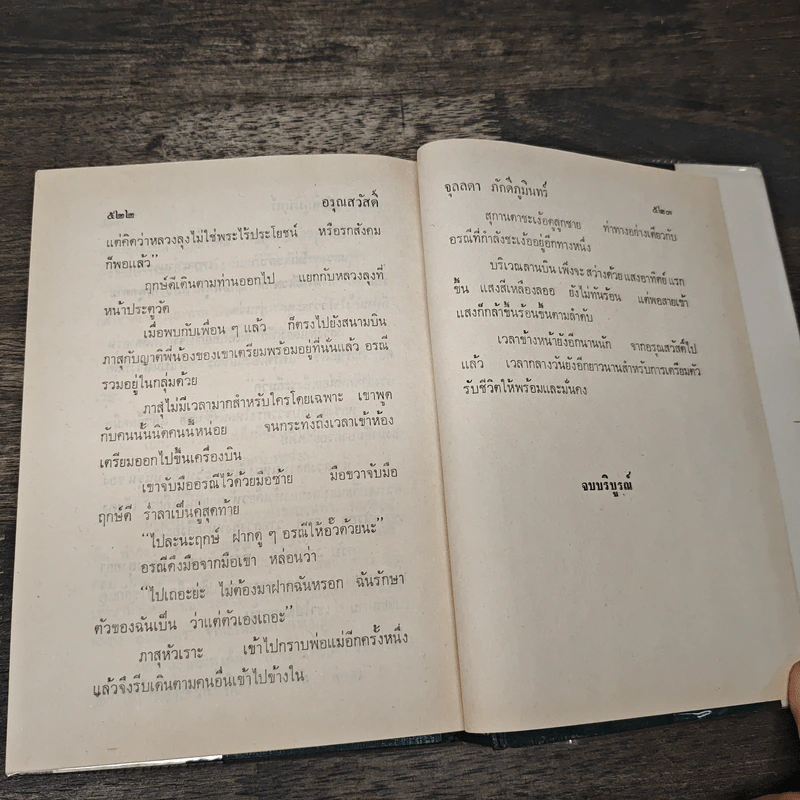 ๕๒๒
อรุณสวัสดิ์
แต่คิดว่าหลวงลุงไม่ใช่พระไร้ประโยชน์ หรือรกสังคม
ก็พอแล้ว”
ฤกษ์ดีเดินตามท่านออกไป แยกกับหลวงลุงที่
หน้าประตูวัด
เมื่อพบกับเพื่อน ๆ แล้ว ก็ตรงไปยังสนามบิน
ภาสุกับญาติพี่น้องของเขาเตรียมพร้อมอยู่ที่นั่นแล้ว อรณี
รวมอยู่ในกลุ่มด้วย
ภาสุไม่มีเวลามากสำหรับใครโดยเฉพาะ เขาพูด
กับคนนั้นนิดคนนี้หน่อย จนกระทั่งถึงเวลาเข้าห้อง
เตรียมออกไปขึ้นเครื่องบิน
เขาจับมืออรณีไว้ด้วยมือซ้าย มือขวาจับมือ
ฤกษ์ดี ร่ำลาเป็นคู่สุดท้าย
“ไปละนะฤกษ์ ฝากดู ๆ อรณีให้อั๊วด้วยนะ”
อรณีดึงมือจากมือเขา หล่อนว่า
“ไปเถอะย่ะ ไม่ต้องมาฝากฉันหรอก ฉันรักษา
ตัวของฉันเป็น ว่าแต่ตัวเองเถอะ”
ภาสุหัวเราะ เข้าไปกราบพ่อแม่อีกครั้งหนึ่ง
แล้วจึงรีบเดินตามคนอื่นเข้าไปข้างใน
จุลลดา ภักดีภูมินทร์
๕๒๓
สุกานดาชะเง้อดูลูกชาย ท่าทางอย่างเดียวกับ
อรณีที่กำลังชะเง้ออยู่อีกทางหนึ่ง
บริเวณลานบิน เพิ่งจะสว่างด้วยแสงอาทิตย์ แรก
ขึ้น แสงสีเหลืองลออ ยังไม่ทันร้อน แต่พอสายเข้า
แสงก็กล้าขึ้นร้อนขึ้นตามลำดับ
เวลาข้างหน้ายังอีกนานนัก จากอรุณสวัสดิ์ไป
แล้ว เวลากลางวันยังอีกยาวนานสำหรับการเตรียมตัว
รับชีวิตให้พร้อมและมั่นคง
จบบริบูรณ์